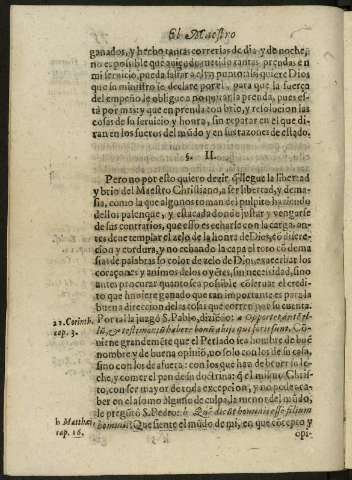 El Maestro
ganados, y hecho tantas correrias de dia, y de noche,
no es posible que auiẽdo metido tantas prendas en
mi seruicio, pueda faltar a esta puntos; si quiere Dios
que su ministro se declare por el, para que la fuerça
del empeño le obligue a no quitar la prenda, pues es-
tà por mas; y que en prenda con brio, y resolucion las
cosas de su seruicio y honra, sin reparar en el que di-
ran en los fueros del mũdo y en sus razones de estado.
§. II.
Pero no por esto quiero dezir q̃ llegue la libertad
y brio del Maestro Christiano, a ser libertad, y dema-
sia, como la que algunos toman del pulpito haziendo
dellos palenque, y estacada donde justar y vengarse
de sus contrarios, que esto es echarse con la carga, an-
tes deue templar el zelo de la honra de Dios, cõ discre-
cion y cordura, y no echando la capa el toro cõ dema-
sias de palabras so color de zelo de Dios, exacerbar los
coraçones y animos de los oyẽtes, sin necessidad, sino
antes procurar quanto sea posible cõseruar el credi-
to que huuiere ganado que tan importante es para la
buena direccion de las cosas que corren por su cuenta.
Por tal la juzgó S. Pablo, diziẽdo: a Oportet autẽ il-
lũ, & testimoniũ habere bonũ ab ijs qui foris sunt. Cõ-
uiene grandemẽte que el Perlado sea hombre de buẽ
nombre y de buena opiniõ, no solo con los de su casa,
sino con los de afuera: con los que han de beuer su le-
che, y comer el pan de su doctrina: q̃ el mismo Chris-
to, con ser mayor de toda excepcion, y no poder ca-
ber en el asomo alguno de culpa, la rumor del mũdo,
le pregũtó S. Pedro: b Quẽ dicũt homines esse filium
hominis? Que siente el mũdo de mi, en que cõcepto y
opi-
a 1. Corinth.
cap. 3.
b Matthæi,
cap. 16.